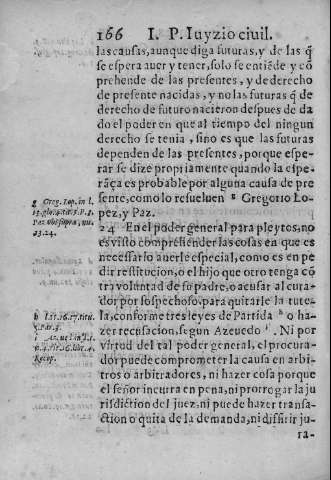 166 I. P. Iuyzio ciuil.
las causas, aunque diga futuras, y de las q̃
se espera auer y tener, solo se entiẽde y cõ
prehende de las presentes, y de derecho
de presente nacidas, y no las futuras q̃ de
derecho de futuro nacieron despues de da
do el poder en que al tiempo del ningun
derecho se tenia, sino es que las futuras
dependen de las presentes, porque espe-
rar se dize propiamente quando la espe-
rãça es probable por alguna causa de pre
sente, como lo resueluen g Gregorio Lo-
pez, y Paz.
24 En el poder general para pleytos, no
es visto comprehender las cosas en que es
necessario auerle especial, como es en pe
dir restitucion, o el hijo que otro tenga cõ
tra voluntad de su padre, o acusar al cura-
dor por sospechoso, para quitarle la tute-
la, conforme tres leyes de Partida h o ha-
zer recusacion, segun Azeuedo i. Ni por
virtud del tal poder general, el procura-
dor puede comprometer la causa en arbi-
tros o arbitradores, ni hazer cosa porque
el señor incurra en pena, ni prorrogar la ju
risdiction del juez, ni puede hazer transa-
ction o quita de la demanda, ni diffirir ju-
ra-
g Greg. Lop. in l.
Paz
23. 24.
h
5. Par. 3.
i
Recop.